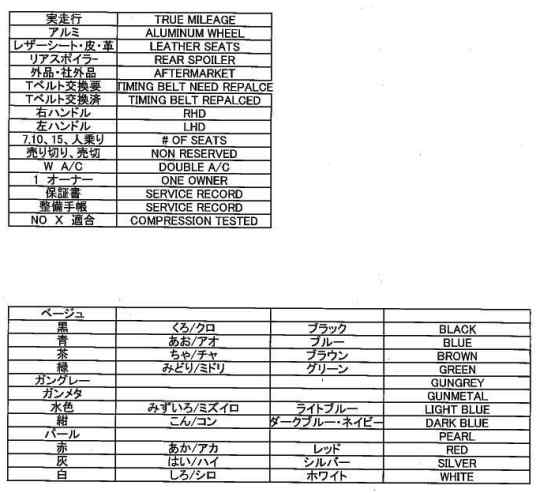 実走行 TRUE MILEAGE
アルミ ALUMINUM WHEEL
レザーシート・皮・革 LEATHER SEATS
リアスポイラー REAR SPOILER
外品・社外品 AFTERMARKET
Tベルト交換要 TIMING BELT NEED REPALCE
Tベルト交換済 TIMING BELT REPALCED
右ハンドル RHD
左ハンドル LHD
7,10、15、人乗り # OF SEATS
売り切り、売切 NON RESERVED
W A/C DOUBLE A/C
1 オーナー ONE OWNER
保証書 SERVICE RECORD
整備手帳 SERVICE RECORD
NO X 適合 COMPRESSION TESTED
ベージュ
黒 くろ/クロ ブラック BLACK
青 あお/アオ ブルー BLUE
茶 ちゃ/チャ ブラウン BROWN
緑 みどり/ミドリ グリーン GREEN
ガングレー GUNGREY
ガンメタ GUNMETAL
水色 みずいろ/ミズイロ ライトブルー LIGHT BLUE
紺 こん/コン ダークブルー・ネイビー DARK BLUE
パール PEARL
赤 あか/アカ レッド RED
灰 はい/ハイ シルバー SILVER
白 しろ/シロ ホワイト WHITE